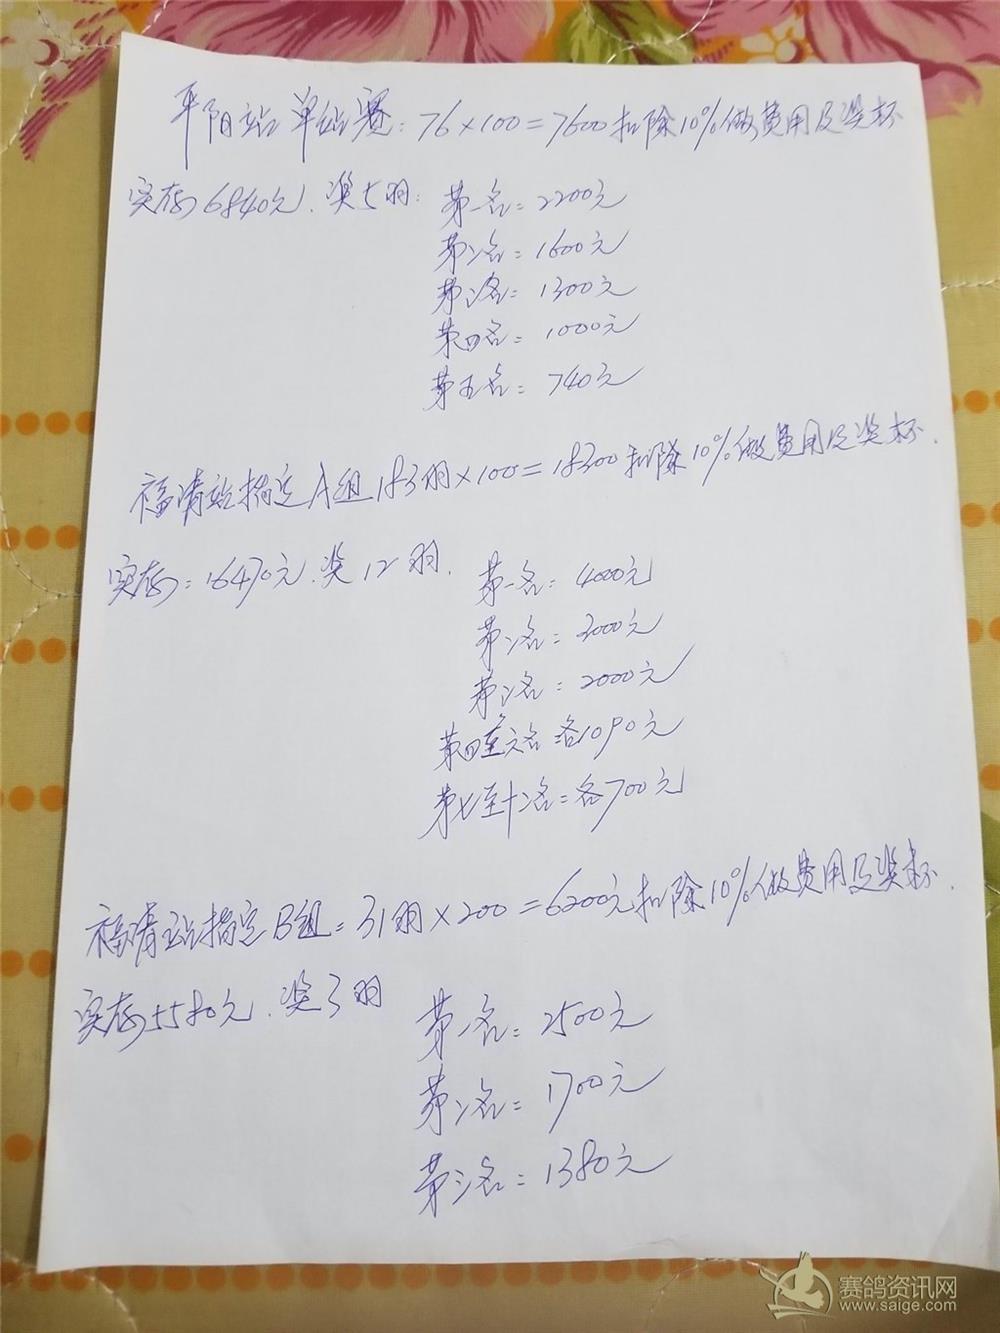 平阳站单站赛：76×100=7600扣除10%做费用及奖杯
实存6840元．奖5羽：
第一名=2200元
第二名=1600元
第三名=1300元
第四名=1000元
第五名=740元
福清站指定A组183羽×100=18300扣除10%做费用及奖杯．
实存：16470元．奖12羽．
第一名=4000元
第二名=3000元
第三名=2000元
第四至六名各1090元
第七至十二名=各700元
福清站指定B组=31羽×200=6200元扣除10%做费用及奖杯．
实存5580元．奖3羽
第一名=2500元
第二名=1700元
第三名=1380元
赛鸽资讯网
www.saige.com